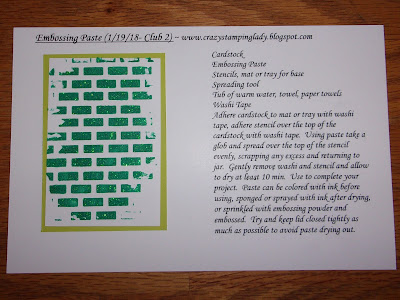 Embossing Paste (1/19/18- Club 2) – www.crazystampinglady.blogspot.com
Cardstock
Embossing Paste
Stencils, mat or tray for base
Spreading tool
Tub of warm water, towel, paper towels
Washi Tape
Adhere cardstock to mat or tray with washi
tape, adhere stencil over the top of the
cardstock with washi tape. Using paste take a
glob and spread over the top of the stencil
evenly, scrapping any excess and returning to
jar. Gently remove washi and stencil and allow
to dry at least 10 min. Use to complete your
project. Paste can be colored with ink before
using, sponged or sprayed with ink after drying,
or sprinkled with embossing powder and
embossed. Try and keep lid closed tightly as
much as possible to avoid paste drying out.